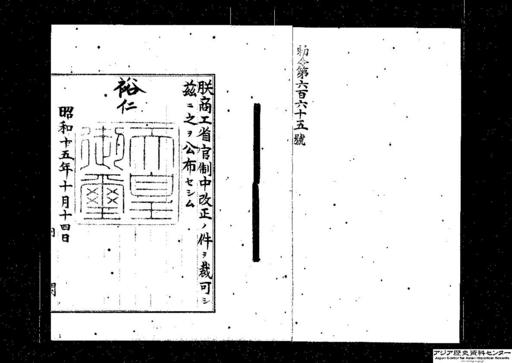 勅令第六百六十五號
朕商工省官制中改正ノ件ヲ裁可シ
茲ニ之ヲ公布セシム
裕仁
天皇御璽
昭和十五年十月十四日
アジア歴史資料センター
Japan Center for Asian Historical Records